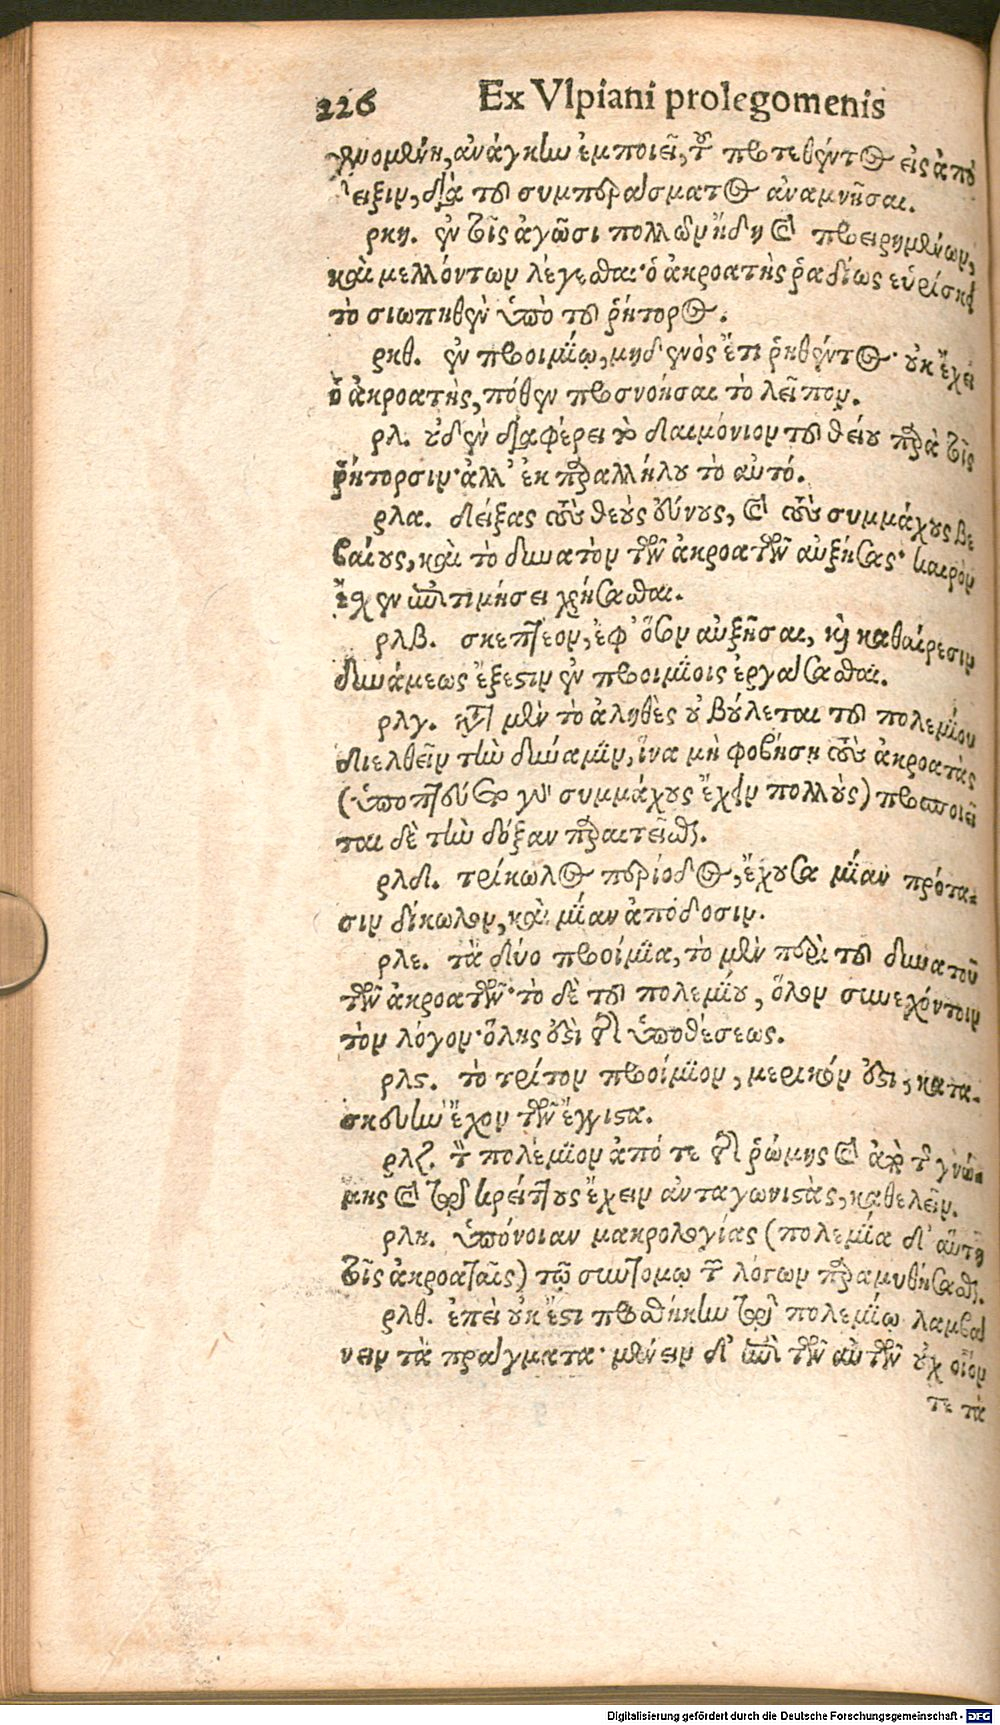 226 Ex Vlpiani prolegomenis
γενομένη, ἀνάγκην ἐμποιεῖ, τοῦ προτεθέντος εἰς ἀπό
δειξιν, διὰ τοῦ συμπεράσματος ἀναμνῆσαι.
ρκη. ἐν τοῖς ἀγῶσι πολλῶν ἤδη καὶ προειρημένων,
καὶ μελλόντων λέγεσθαι· ὁ ἀκροατὴς ῥαδίως εὑρίσκει
τὸ σιωπηθὲν ὑπὸ τοῦ ῥήτορος.
ρκθ. ἐν προιμίῳ, μηδενὸς ἔτι ῥηθέντος· οὐκ ἔχει
ὁ ἀκροατὴς, πόθεν προσνοήσαι τὸ λεῖπον.
ρλ. οὐδὲν διαφέρει τὸ δαιμόνιον τοῦ θείου παρὰ τοῖς
ῥήτορσιν· ἀλλ' ἐκ παραλλήλου τὸ αὐτό.
ρλα. δείξας τοὺς θεοὺς εὔνους, καὶ τοὺς συμμάχους βε
βαίους, καὶ τὸ δυνατὸν τῶν ἀκροατῶν αὐξήσας· καιρὸν
ἔχεν ἐπιτιμήσει χρήσασθαι.
ρλβ. σκεπτέον, ἐφ' ὅσον αὐξῆσαι, καὶ καθαίρεσιν
δυνάμεως ἔξεστιν ἐν προιμίοις ἐργάσασθαι.
ρλγ. κατὰ μὲν τὸ ἀληθὲς οὐ βούλεται τοῦ πολεμίου
διελθεῖν τὴν δύναμιν, ἵνα μὴ φοβήσῃ τοὺς ἀκροατὰς
(ὑποπτεύσει γὰρ συμμάχους ἔχειν πολλοὺς) προσποιεῖ
ται δὲ τὴν δόξαν παραιτεῖσθαι.
ρλδ. τρίκωλος περίοδος, ἔχουσα μίαν πρότα-
σιν δίκωλον, καὶ μίαν ἀπόδοσιν.
ρλε. τὰ δύο προίμια, τὸ μὲν περὶ τοῦ δυνατοῦ
τῶν ἀκροατῶν· τὸ δὲ τοῦ πολεμίου, ὅλον συνεχόντοιν
τὸν λόγον· ὅλης ἐστὶ τῆς ὑποθέσεως.
ρλϛ. τὸ τρίτον προίμιον, μερικόν ἐστι, κατα-
σκευὴν ἔχον τῶν ἔγγιστα.
ρλζ. τὸν πολέμιον ἀπό τε τῆς ῥώμης καὶ ἀπὸ τῆς γνώ-
μης καὶ τοῦ κρείττους ἔχειν ἀνταγωνιστὰς, καθελεῖν.
ρλη. ὑπόνοιαν μακρολογίας (πολεμία δ' αὕτη
τοῖς ἀκροαταῖς) τῷ συντόμῳ τὸν λόγων παραμυθήσασθαι.
ρλθ. ἐπεὶ οὐκ ἔστι προσθήκην τῷ πολεμίῳ λαμβά
νειν τὰ πράγματα· μένειν δ' ἐπὶ τῶν αὐτῶν οὐχ οἷόν
τε τὰ
Digitalisierung gefördert durch die Deutsche Forschungsgemeinschaft - DFG